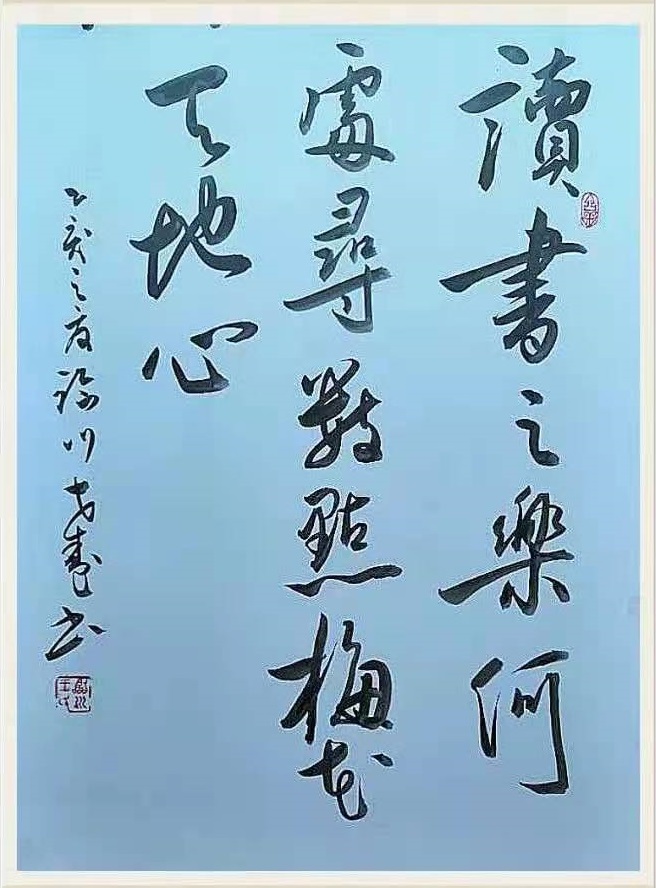 讀書之樂何
處尋數點梅花
天地心
乙亥之夏
川
書